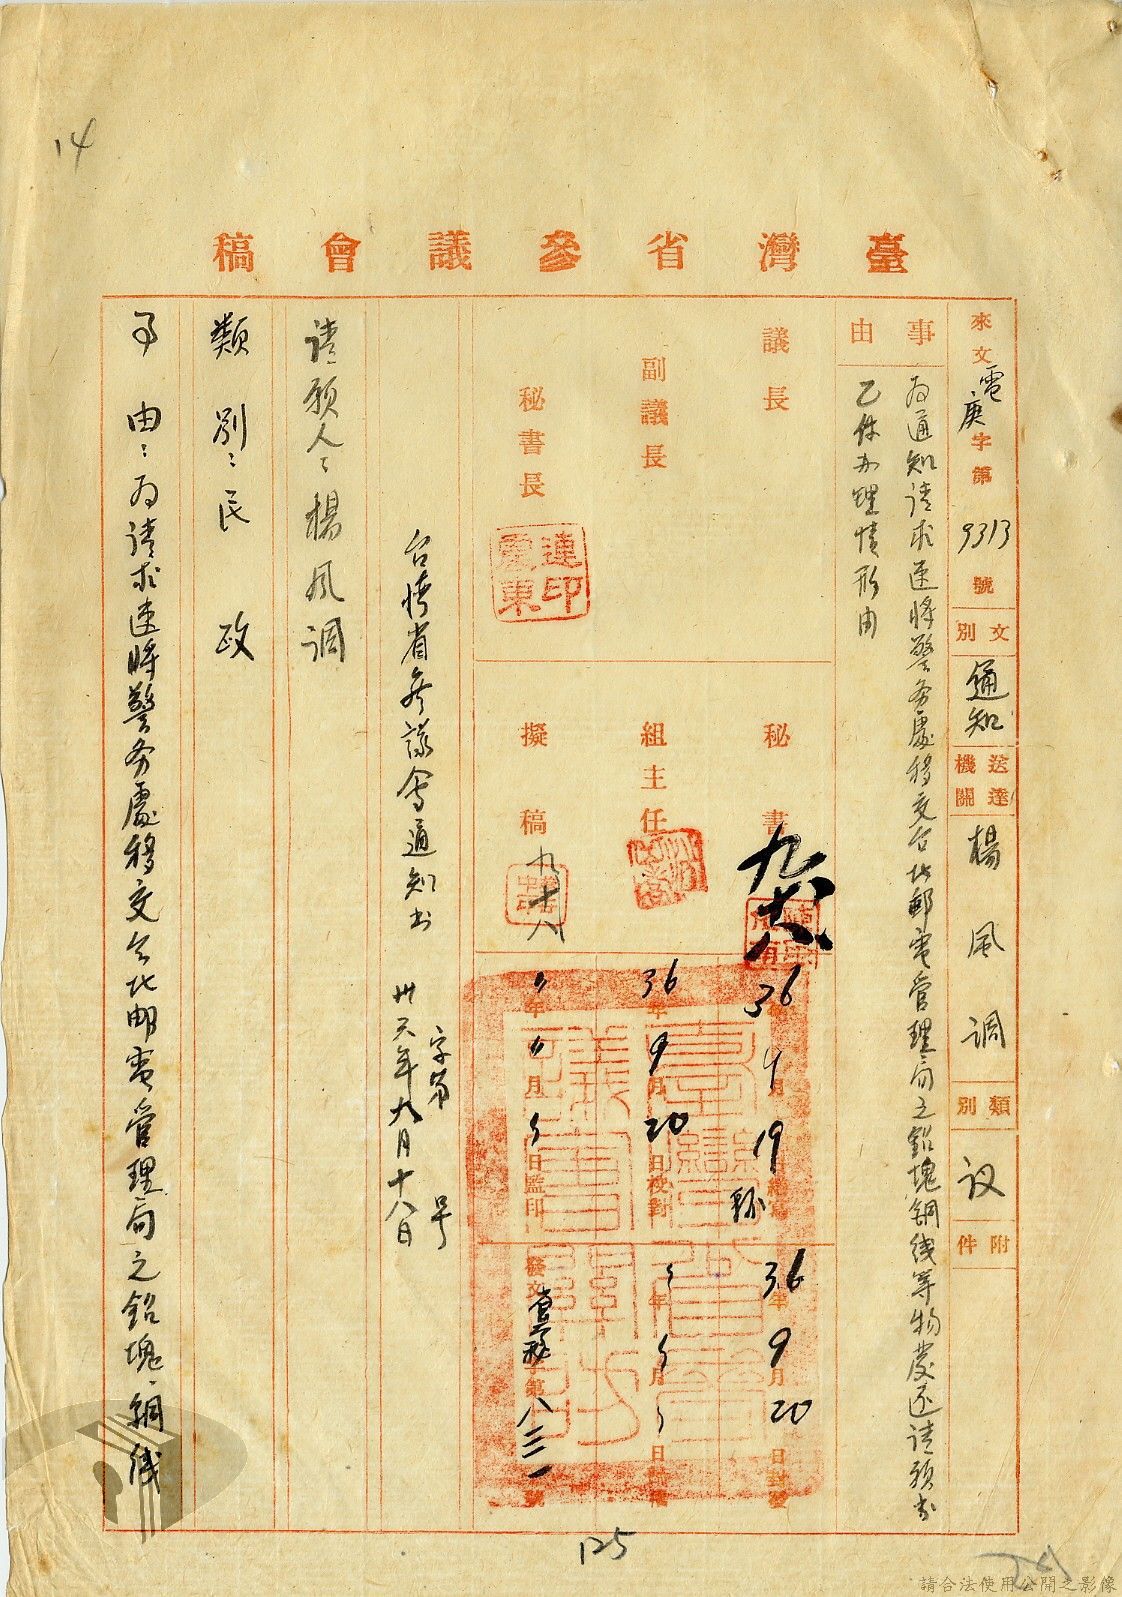 14
臺灣省參議會稿
來文電庚字第9313號
文別
通知
送達機關
楊風調
類別
議
附件
事由
為通知請求速將警务處移交台北郵電管理局之鋁塊銅线等物發还請願書
乙件办理情形由
議長
副議長
秘書長
連震東印
秘書
九十八
組主任
擬稿
九十八
36年9月19日繕寫
36年9月20日校對
〃年〃月〃日監印
36年9月20日封發
年月日歸檔
發文字第八三三一號
台灣省參議會通知書
字第 号
卅六年九月十八日
請願人：楊風調
類別：民政
事由：为請求速將警务處移交台北邮電管理局之鋁塊、銅线
125
請合法使用公開之影像